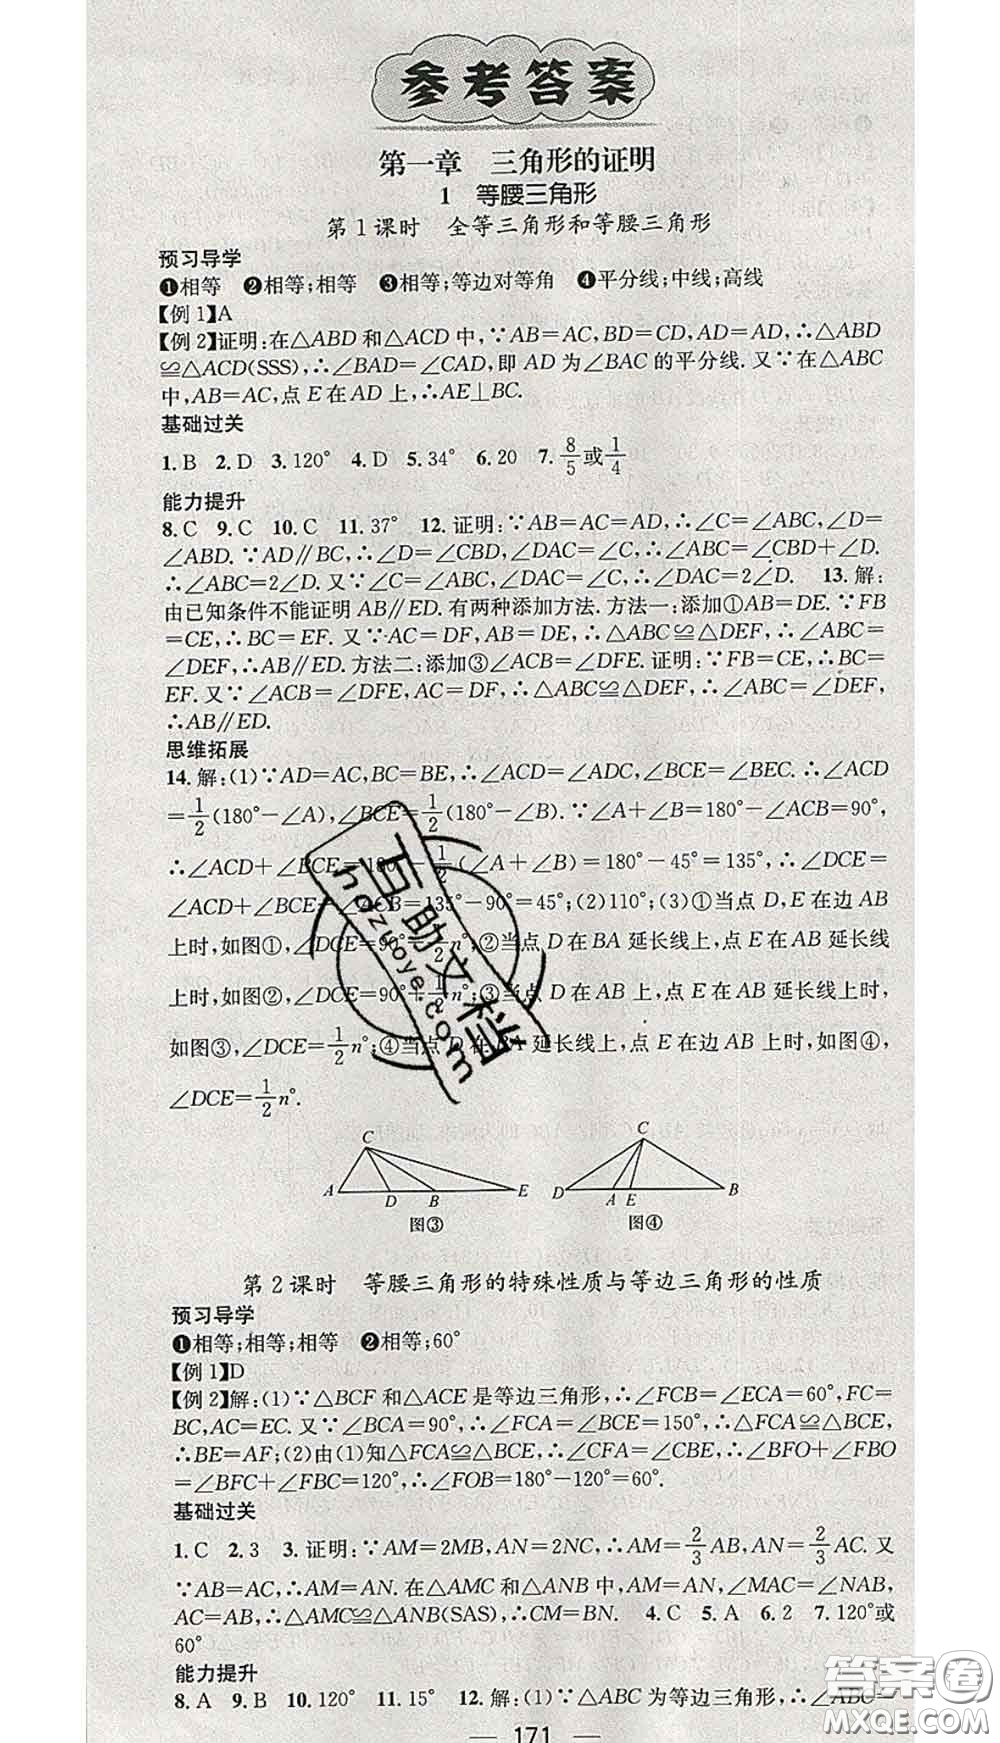 参考答案
第一章　三角形的证明
1　等腰三角形
第1课时　全等三角形和等腰三角形
预习导学
❶相等　❷相等;相等　❸相等;等边对等角　❹平分线;中线;高线
【例1】A
【例2】证明:在△ABD和△ACD中,∵AB=AC,BD=CD,AD=AD,∴△ABD
≌△ACD(SSS),∴∠BAD=∠CAD,即AD为∠BAC的平分线.又∵在△ABC
中,AB=AC,点E在AD上,∴AE⊥BC.
基础过关
1.B　2.D　3.120°　4.D　5.34°　6.20　7.8/5或1/4
能力提升
8.C　9.C　10.C　11.37°　12.证明:∵AB=AC=AD,∴∠C=∠ABC,∠D=
∠ABD.∵AD∥BC,∴∠D=∠CBD,∠DAC=∠C,∴∠ABC=∠CBD+∠D.
∴∠ABC=2∠D.又∵∠C=∠ABC,∠DAC=∠C,∴∠DAC=2∠D.　13.解:
由已知条件不能证明AB∥ED.有两种添加方法.方法一:添加①AB=DE.∵FB
=CE,∴BC=EF.又∵AC=DF,AB=DE,∴△ABC≌△DEF,∴∠ABC=
∠DEF,∴AB∥ED.方法二:添加③∠ACB=∠DFE.证明:∵FB=CE,∴BC=
EF.又∵∠ACB=∠DFE,AC=DF,∴△ABC≌△DEF,∴∠ABC=∠DEF,
∴AB∥ED.
思维拓展
14.解:(1)∵AD=AC,BC=BE,∴∠ACD=∠ADC,∠BCE=∠BEC.∴∠ACD
=1/2(180°-∠A),∠BCE=1/2(180°-∠B).∵∠A+∠B=180°-∠ACB=90°,
∴∠ACD+∠BCE=180°-1/2(∠A+∠B)=180°-45°=135°,∴∠DCE=
∠ACD+∠BCE-∠ACB=135°-90°=45°;(2)110°;(3)①当点D,E在边AB
上时,如图①,∠DCE=90°-1/2n°;②当点D在BA延长线上,点E在AB延长线
上时,如图②,∠DCE=90°+1/2n°;③当点D在AB上,点E在AB延长线上时,
如图③,∠DCE=1/2n°;④当点D在BA延长线上,点E在边AB上时,如图④,
∠DCE=1/2n°.
C
A D B E
图③
C
D A E B
图④
第2课时　等腰三角形的特殊性质与等边三角形的性质
预习导学
❶相等;相等;相等　❷相等;60°
【例1】D
【例2】解:(1)∵△BCF和△ACE是等边三角形,∴∠FCB=∠ECA=60°,FC=
BC,AC=EC.又∵∠BCA=90°,∴∠FCA=∠BCE=150°,∴△FCA≌△BCE,
∴BE=AF;(2)由(1)知△FCA≌△BCE,∴∠CFA=∠CBE,∴∠BFO+∠FBO
=∠BFC+∠FBC=120°,∴∠FOB=180°-120°=60°.
基础过关
1.C　2.3　3.证明:∵AM=2MB,AN=2NC,∴AM=2/3AB,AN=2/3AC.又
∵AB=AC,∴AM=AN.在△AMC和△ANB中,AM=AN,∠MAC=∠NAB,
AC=AB,∴△AMC≌△ANB(SAS),∴CM=BN.　4.C　5.A　6.2　7.120°或
60°
能力提升
8.A　9.B　10.120°　11.15°　12.解:(1)∵△ABC为等边三角形,∴∠ABC=
— 171 —
互助文档
hozuoye.com
答案圈
MXQE.COM